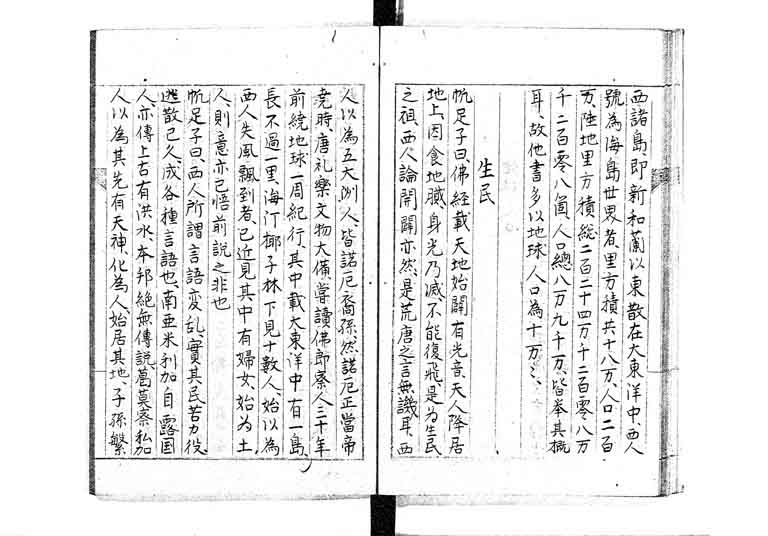 西諸島即新和蘭以東散在大東洋中西人
號為海島世界者里方積共十八万人口二百
万陸地里方積総二百二十四万千二百零八万
千二百零八箇人口總八万九千万皆挙其概
耳故他書多以地球人口為十万〻
生民
帆足子曰佛経載天地始闢有光音天人降居
地上因食地膩身光乃滅不能復飛是為生民
之祖西人論開闢亦然是荒唐之言無譏耳西
人以為五大洲人皆諾厄裔孫然諾厄正當帝
堯時唐礼樂文物大備嘗讀佛郎察人三十年
前繞地球一周紀行其中載大東洋中有一島
長不過一里海汀椰子林下見十數人始以為
西人失風飄到者已近見其中有婦女始為土
人則意亦已悟前説之非也
帆足子曰西人所謂言語変乱實其民苦力役
逃散已久成各種言語也南亜米利加自露国
人亦傳上古有洪水本邦絶無傳説葛莫察私加
人以為其先有天神化為人始居其地子孫繁